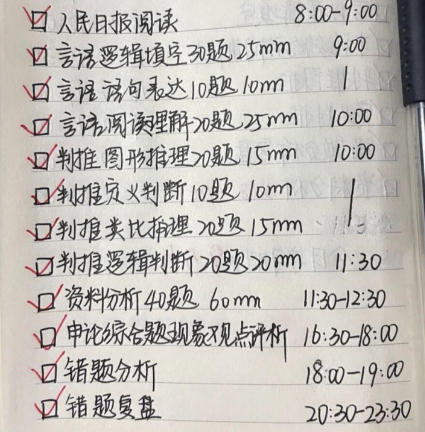 人民日报阅读 8:00-9:00
言语逻辑填空30题 25mm 9:00
言语语句表达10题 10mm |
言语阅读理解20题 25mm 10:00
判推图形推理20题 15mm 10:00
判推定义判断10题 10mm |
判推类比推理20题 15mm
判推逻辑判断20题 20mm 11:30
资料分析40题 60mm 11:30-12:30
申论综合题现象观点评析 16:30-18:00
错题分析 18:00-19:00
错题复盘 20:30-23:30